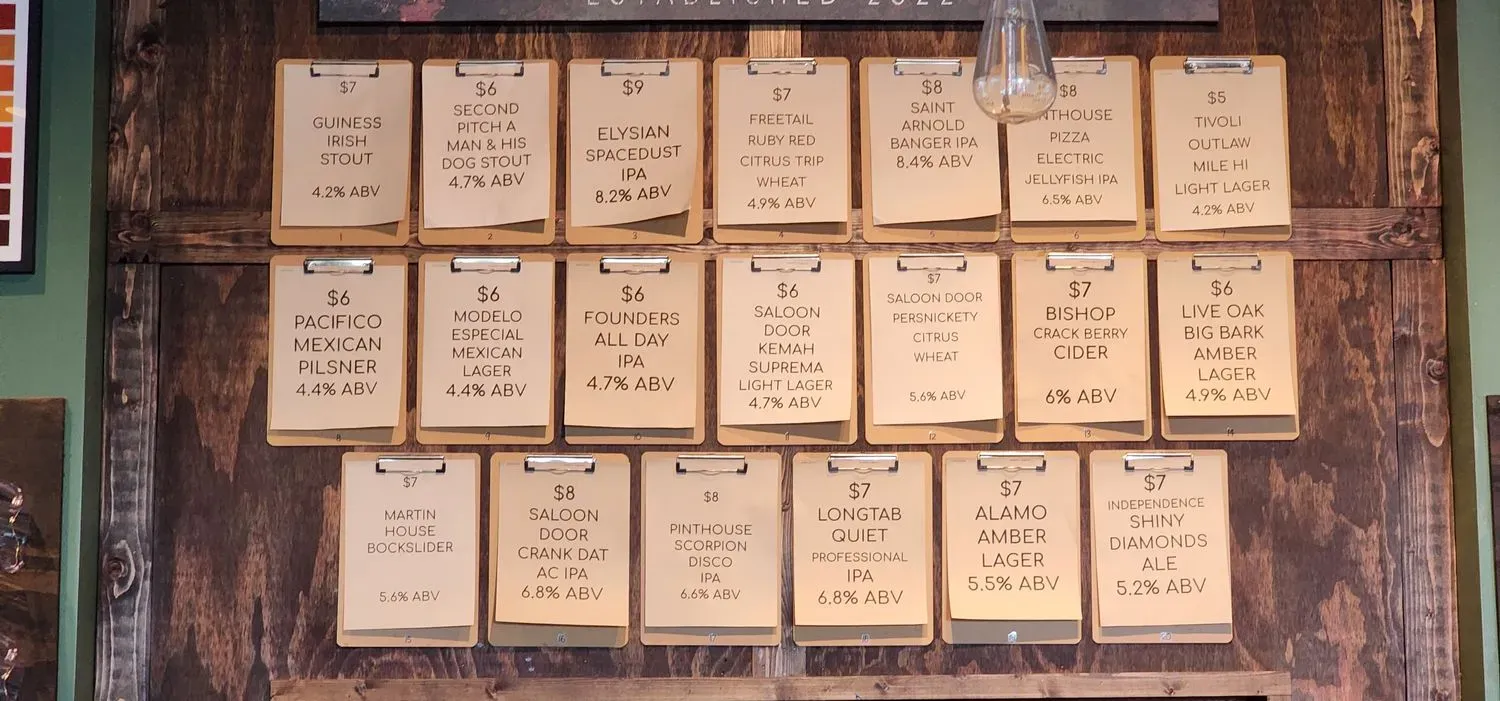 ESTABLISHED 2022
$7
GUINESS
IRISH
STOUT
4.2% ABV
1
$6
SECOND
PITCH A
MAN & HIS
DOG STOUT
4.7% ABV
2
$9
ELYSIAN
SPACEDUST
IPA
8.2% ABV
3
$7
FREETAIL
RUBY RED
CITRUS TRIP
WHEAT
4.9% ABV
4
$8
SAINT
ARNOLD
BANGER IPA
8.4% ABV
5
$8
NTHOUSE
PIZZA
ELECTRIC
JELLYFISH IPA
6.5% ABV
6
$5
TIVOLI
OUTLAW
MILE HI
LIGHT LAGER
4.2% ABV
7
$6
PACIFICO
MEXICAN
PILSNER
4.4% ABV
8
$6
MODELO
ESPECIAL
MEXICAN
LAGER
4.4% ABV
9
$6
FOUNDERS
ALL DAY
IPA
4.7% ABV
10
$6
SALOON
DOOR
KEMAH
SUPREMA
LIGHT LAGER
4.7% ABV
11
$7
SALOON DOOR
PERSNICKETY
CITRUS
WHEAT
5.6% ABV
12
$7
BISHOP
CRACK BERRY
CIDER
6% ABV
13
$6
LIVE OAK
BIG BARK
AMBER
LAGER
4.9% ABV
14
$7
MARTIN
HOUSE
BOCKSLIDER
5.6% ABV
15
$8
SALOON
DOOR
CRANK DAT
AC IPA
6.8% ABV
16
$8
PINTHOUSE
SCORPION
DISCO
IPA
6.6% ABV
17
$7
LONGTAB
QUIET
PROFESSIONAL
IPA
6.8% ABV
18
$7
ALAMO
AMBER
LAGER
5.5% ABV
19
$7
INDEPENDENCE
SHINY
DIAMONDS
ALE
5.2% ABV
20